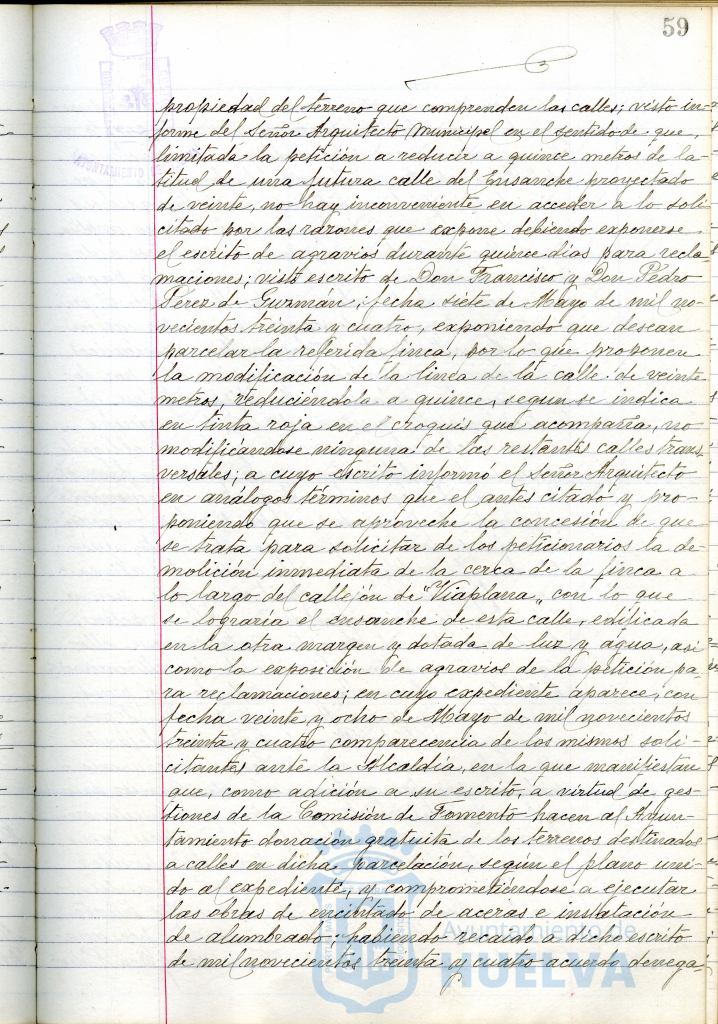 59
propiedad del terreno que comprenden las calles; visto in-
forme del Señor Arquitecto Municipal en el sentido de que,
limitada la petición a reducir a quince metros de la-
titud de una futura calle del Ensanche proyectado
de veinte, no hay inconveniente en acceder a lo soli-
citado por las razones que expone debiendo exponerse
el escrito de agravios durante quince días para recla-
maciones; visto escrito de Don Francisco y Don Pedro
Pérez de Guzmán, fecha siete de Mayo de mil no-
vecientos treinta y cuatro, exponiendo que desean
parcelar la referida finca, por lo que proponen
la modificación de la linea de la calle de veinte
metros, reduciéndola a quince, segun se indica
en tinta roja en el croquis que acompaña, no
modificandose ninguna de las restantes calles trans-
versales; a cuyo escrito informó el Señor Arquitecto
en análogos términos que el antes citado y pro-
poniendo que se aproveche la concesión de que
se trata para solicitar de los peticionarios la de-
molición inmediata de la cerca de la finca a
lo largo del callejón de "Viaplana" con lo que
se lograría el ensanche de esta calle, edificada
en la otra margen y dotada de luz y agua, asi
como la exposición de agravios de la petición pa-
ra reclamaciones; en cuyo expediente aparece, con
fecha veinte y ocho de Mayo de mil novecientos
treinta y cuatro comparecencia de los mismos soli-
citantes ante la Alcaldía, en la que manifiestan
que, como adición a su escrito, a virtud de ges-
tiones de la Comisión de Fomento hacen al Ayun-
tamiento donación gratuita de los terrenos destinados
a calles en dicha parcelación, según el plano uni-
do al expediente, y comprometiéndose a ejecutar
las obras de encintado de aceras e instalación
de alumbrado; habiendo recaido a dicho escrito
de mil novecientos treinta y cuatro acuerdo denega-
Ayuntamiento de
HUELVA